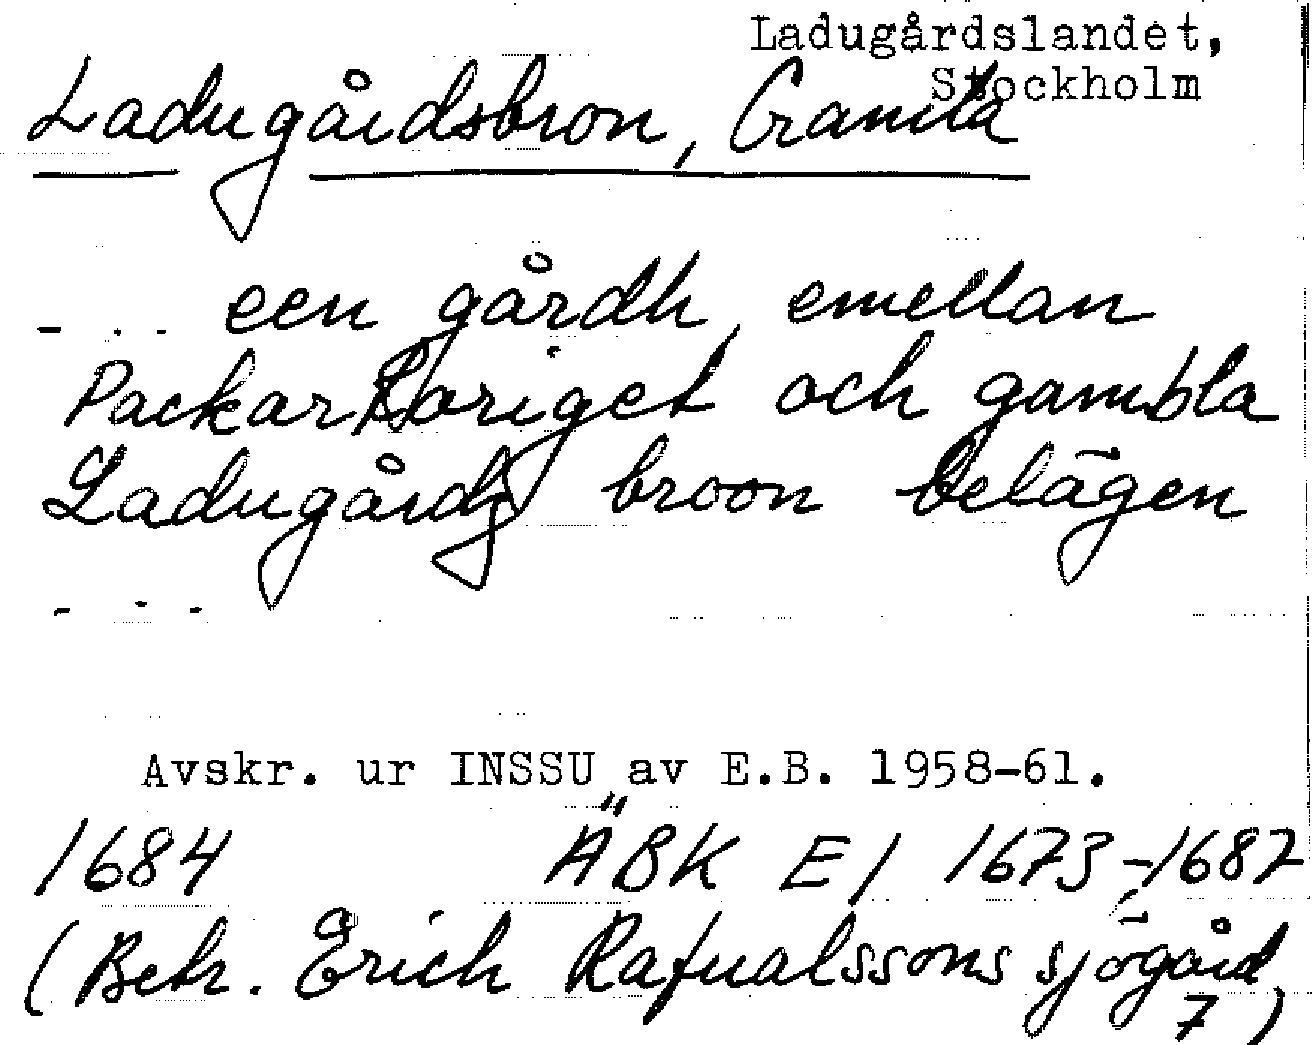 Ladugårdslandet,
Stockholm
Ladugårdsbron, Gamla
- . . een gårdh, emellan
Packartoriget och gambla
Ladugårdz broon belägen
- - -
Avskr. ur INSSU av E.B. 1958-61.
1684 ÄBK E1 1673-1687
(Betr. Erich Rafualssons sjögård
7)